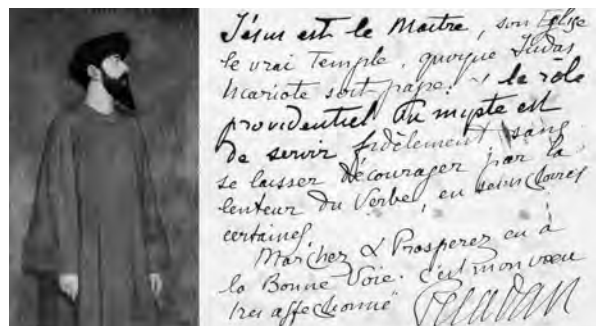 Jésus est le Maître, son Eglise
le vrai Temple, quoique Judas
Iscariote soit pape. le rôle
providentiel du myste est
de servir fidèlement sans
se laisser décourager par la
lenteur du Verbe, en
certaines
Marchez & Prosperez en a
la Bonne Voie. c'est mon vœu
très affectionné Peladan